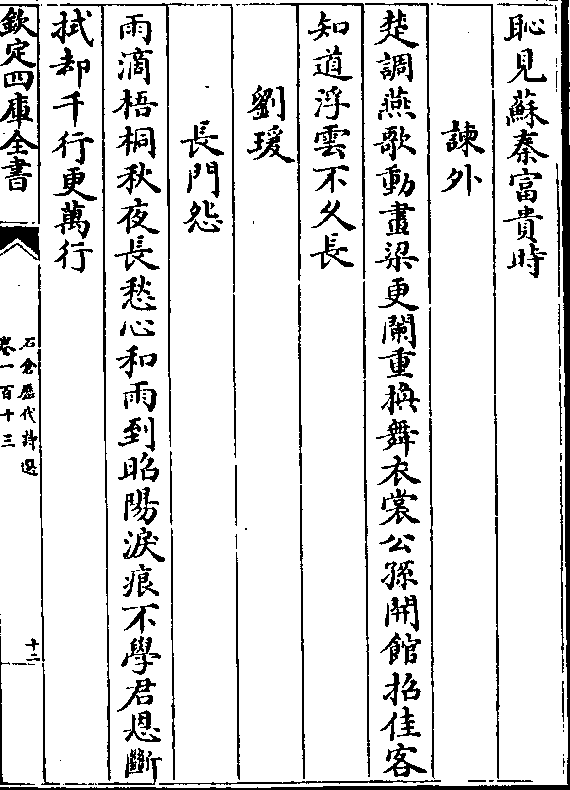 恥見蘇秦富貴時
諫外
楚調燕歌動畫梁更闌重換舞衣裳公孫開館招佳客
知道浮雲不久長
劉瑗
長門怨
雨滴梧桐秋夜長愁心和雨到昭陽淚痕不學君恩斷
拭却千行更萬行
欽定四庫全書
石倉歷代詩選
卷一百十三
十二